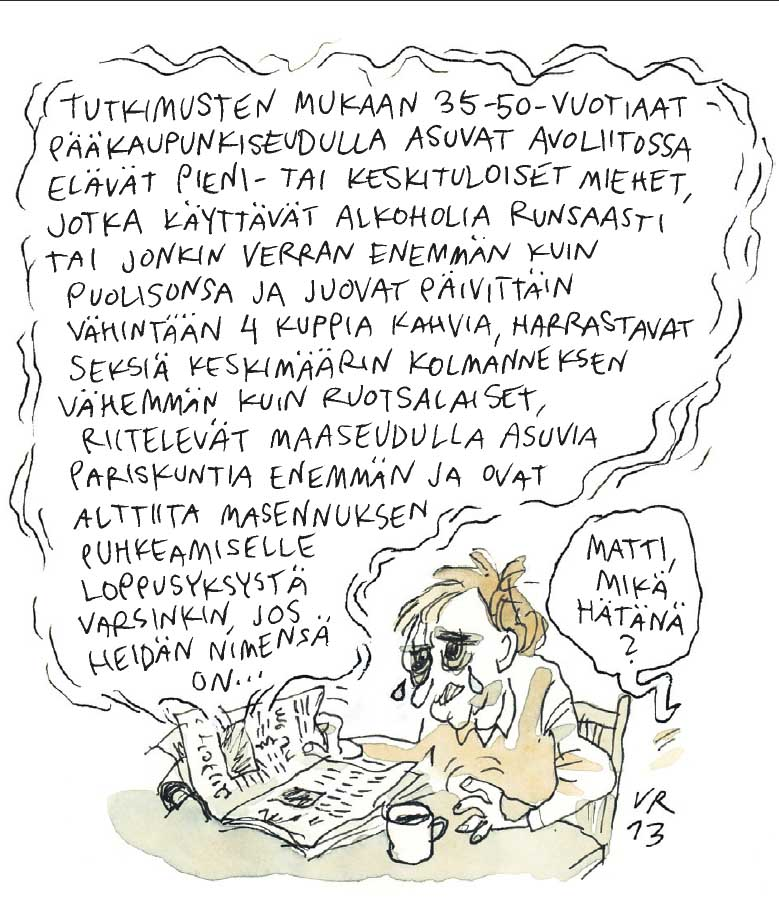 TUTKIMUSTEN MUKAAN 35-50-VUOTIAAT
PÄÄKAUPUNKISEUDULLA ASUVAT AVOLIITOSSA
ELÄVÄT PIENI- TAI KESKITULOISET MIEHET,
JOTKA KÄYTTÄVÄT ALKOHOLIA RUNSAASTI
TAI JONKIN VERRAN ENEMMÄN KUIN
PUOLISONSA JA JUOVAT PÄIVITTÄIN
VÄHINTÄÄN 4 KUPPIA KAHVIA, HARRASTAVAT
SEKSIÄ KESKIMÄÄRIN KOLMANNEKSEN
VÄHEMMÄN KUIN RUOTSALAISET,
RIITELEVÄT MAASEUDULLA ASUVIA
PARISKUNTIA ENEMMÄN JA OVAT
ALTTIITA MASENNUKSEN
PUHKEAMISELLE
LOPPUSYKSYSTÄ
VARSINKIN, JOS
HEIDÄN NIMENSÄ
ON...
MATTI,
MIKÄ
HÄTÄNÄ
?
VR
13